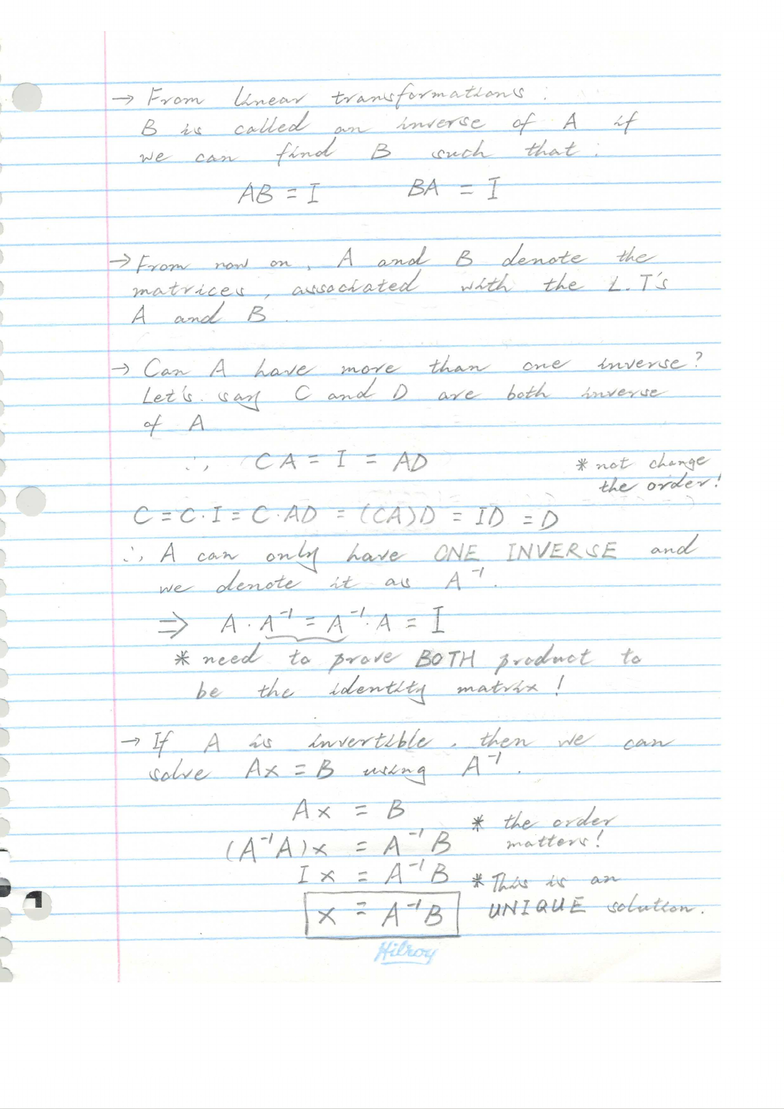 → From linear transformations :
B is called an inverse of A if
we can find B such that :
AB = I BA = I
→ From now on, A and B denote the
matrices, associated with the L.T's
A and B.
→ Can A have more than one inverse?
Let's say C and D are both inverse
of A
∴ CA = I = AD * not change
the order!
C = C·I = C·AD = (CA)D = ID = D
∴ A can only have ONE INVERSE and
we denote it as A⁻¹.
⇒ A·A⁻¹ = A⁻¹·A = I
* need to prove BOTH product to
be the identity matrix !
→ If A is invertible, then we can
solve Ax = B using A⁻¹.
Ax = B * the order
(A⁻¹A)x = A⁻¹B matters!
Ix = A⁻¹B * This is an
x = A⁻¹B UNIQUE solution.
Hilroy